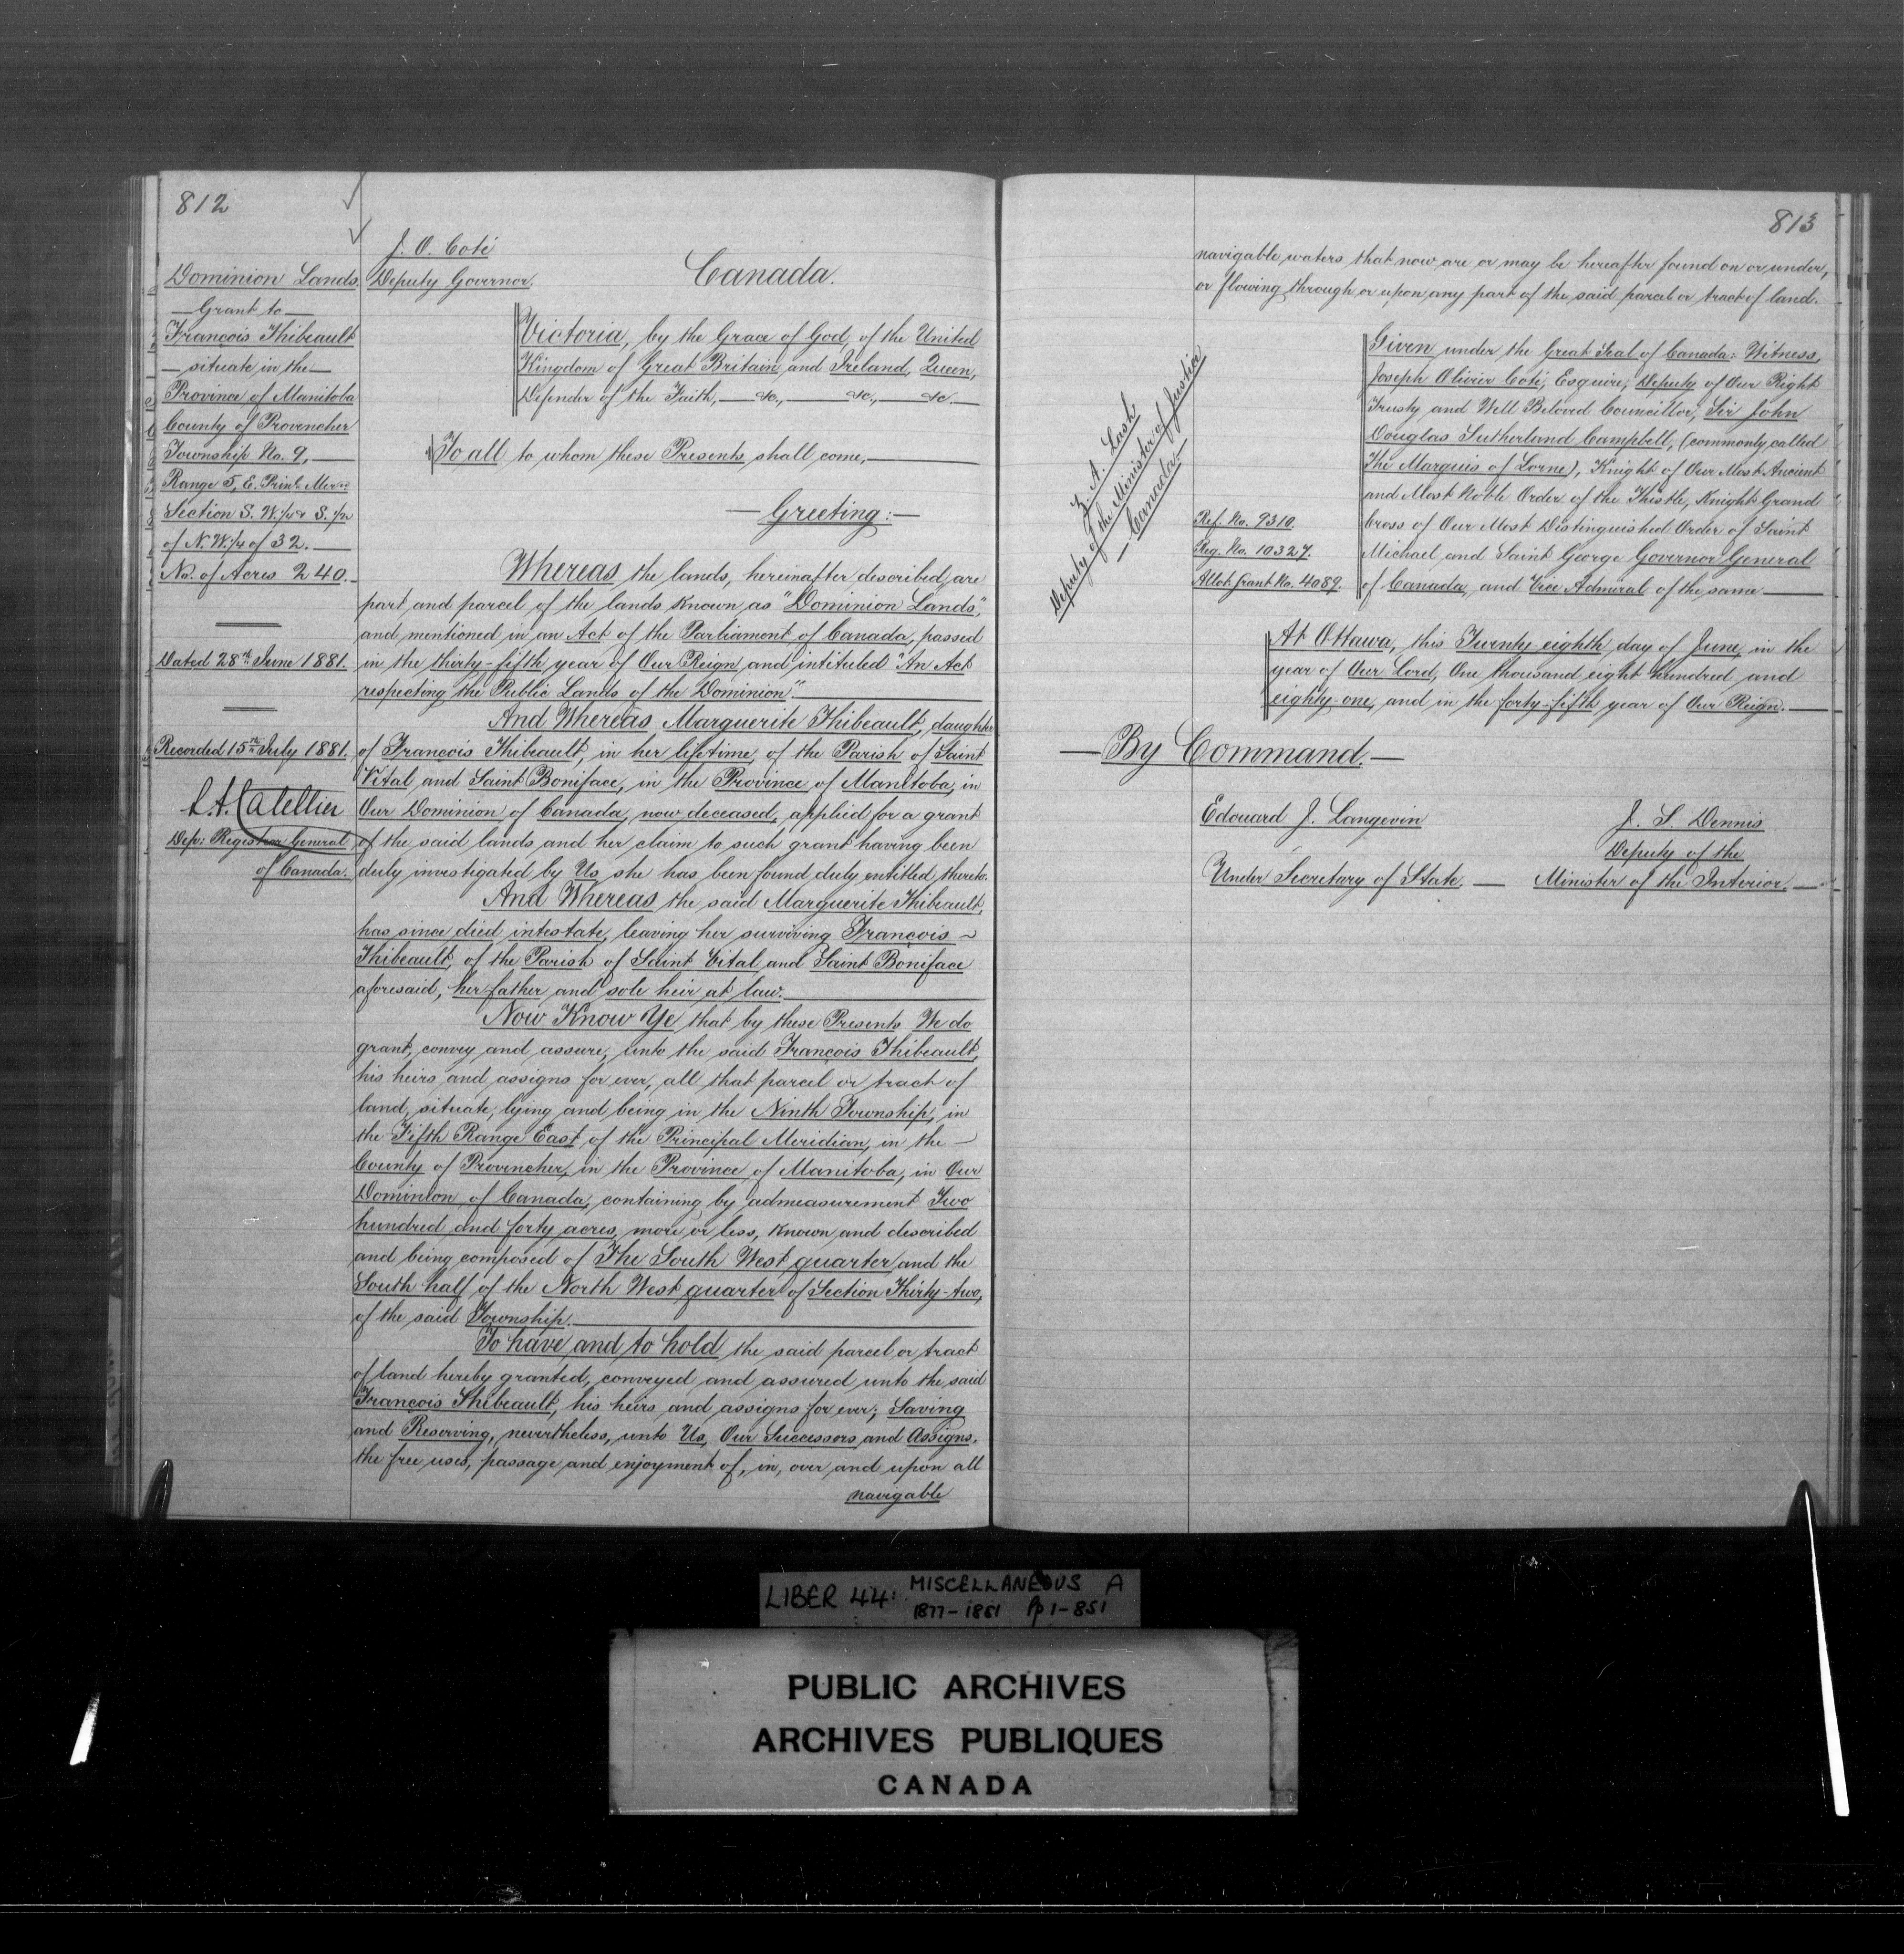 812
Dominion Lands.
—Grant to—
François Thibeault
— situate in the—
Province of Manitoba
County of Provencher
Township No. 9,
Range 5, E. Prinl. Mern.
Section S. W. 1/4 & S. 1/2
of N. W. 1/4 of 32.
No. of Acres 240.
Dated 28th June 1881.
Recorded 15th July 1881.
L. A. Catellier
Dep: Registrar General
of Canada.
J. O. Coté
Deputy Governor.
Canada.
Victoria, by the Grace of God, of the United
Kingdom of Great Britain and Ireland, Queen,
Defender of the Faith, — &c., — &c., — &c. —
To all to whom these Presents shall come, —
— Greeting: —
Whereas the lands, hereinafter described, are
part and parcel of the lands known as "Dominion Lands",
and mentioned in an Act of the Parliament of Canada, passed
in the thirty-fifth year of Our Reign, and intituled "An Act
respecting the Public Lands of the Dominion." —
And Whereas Marguerite Thibeault, daughter
of François Thibeault, in her lifetime, of the Parish of Saint
Vital and Saint Boniface, in the Province of Manitoba, in
Our Dominion of Canada, now deceased, applied for a grant
of the said lands and her claim to such grant having been
duly investigated by Us she has been found duly entitled thereto.
And Whereas the said Marguerite Thibeault,
has since died intestate, leaving her surviving François ~
Thibeault, of the Parish of Saint Vital and Saint Boniface
aforesaid, her father and sole heir at law. —
Now Know Ye that by these Presents We do
grant, convey and assure, unto the said François Thibeault,
his heirs and assigns for ever, all that parcel or tract of
land, situate, lying and being in the Ninth Township, in
the Fifth Range East, of the Principal Meridian, in the —
County of Provencher, in the Province of Manitoba, in Our
Dominion of Canada, containing by admeasurement Two
hundred and forty acres, more or less, known and described
and being composed of The South West quarter and the
South half of the North West quarter of Section Thirty-two,
of the said Township. —
To have and to hold the said parcel or tract
of land hereby granted, conveyed and assured unto the said
François Thibeault, his heirs and assigns for ever; Saving
and Reserving, nevertheless, unto Us, Our Successors and Assigns,
the free uses, passage and enjoyment of, in, over and upon all
navigable
813
navigable waters that now are or may be hereafter found on or under,
or flowing through or upon any part of the said parcel or tract of land.
Z. A. Lash
Deputy of the Minister of Justice
— Canada —
Ref. No. 9310.
Reg. No. 10327.
Allot. Grant No. 4089.
Given under the Great Seal of Canada: Witness,
Joseph Olivier Coté, Esquire, Deputy of Our Right
Trusty and Well Beloved Councillor, Sir John
Douglas Sutherland Campbell, (commonly called
The Marquis of Lorne), Knight of Our Most Ancient
and Most Noble Order of the Thistle, Knight Grand
Cross of Our Most Distinguished Order of Saint
Michael and Saint George Governor General
of Canada, and Vice Admiral of the same —
At Ottawa, this Twenty eighth day of June, in the
year of Our Lord, One thousand eight hundred and
eighty-one, and in the forty-fifth year of Our Reign. —
— By Command. —
Edouard J. Langevin
Under Secretary of State. —
J. S. Dennis
Deputy of the
Minister of the Interior. —
LIBER 44: MISCELLANEOUS A
1877-1881 Pp 1-851
PUBLIC ARCHIVES
ARCHIVES PUBLIQUES
CANADA